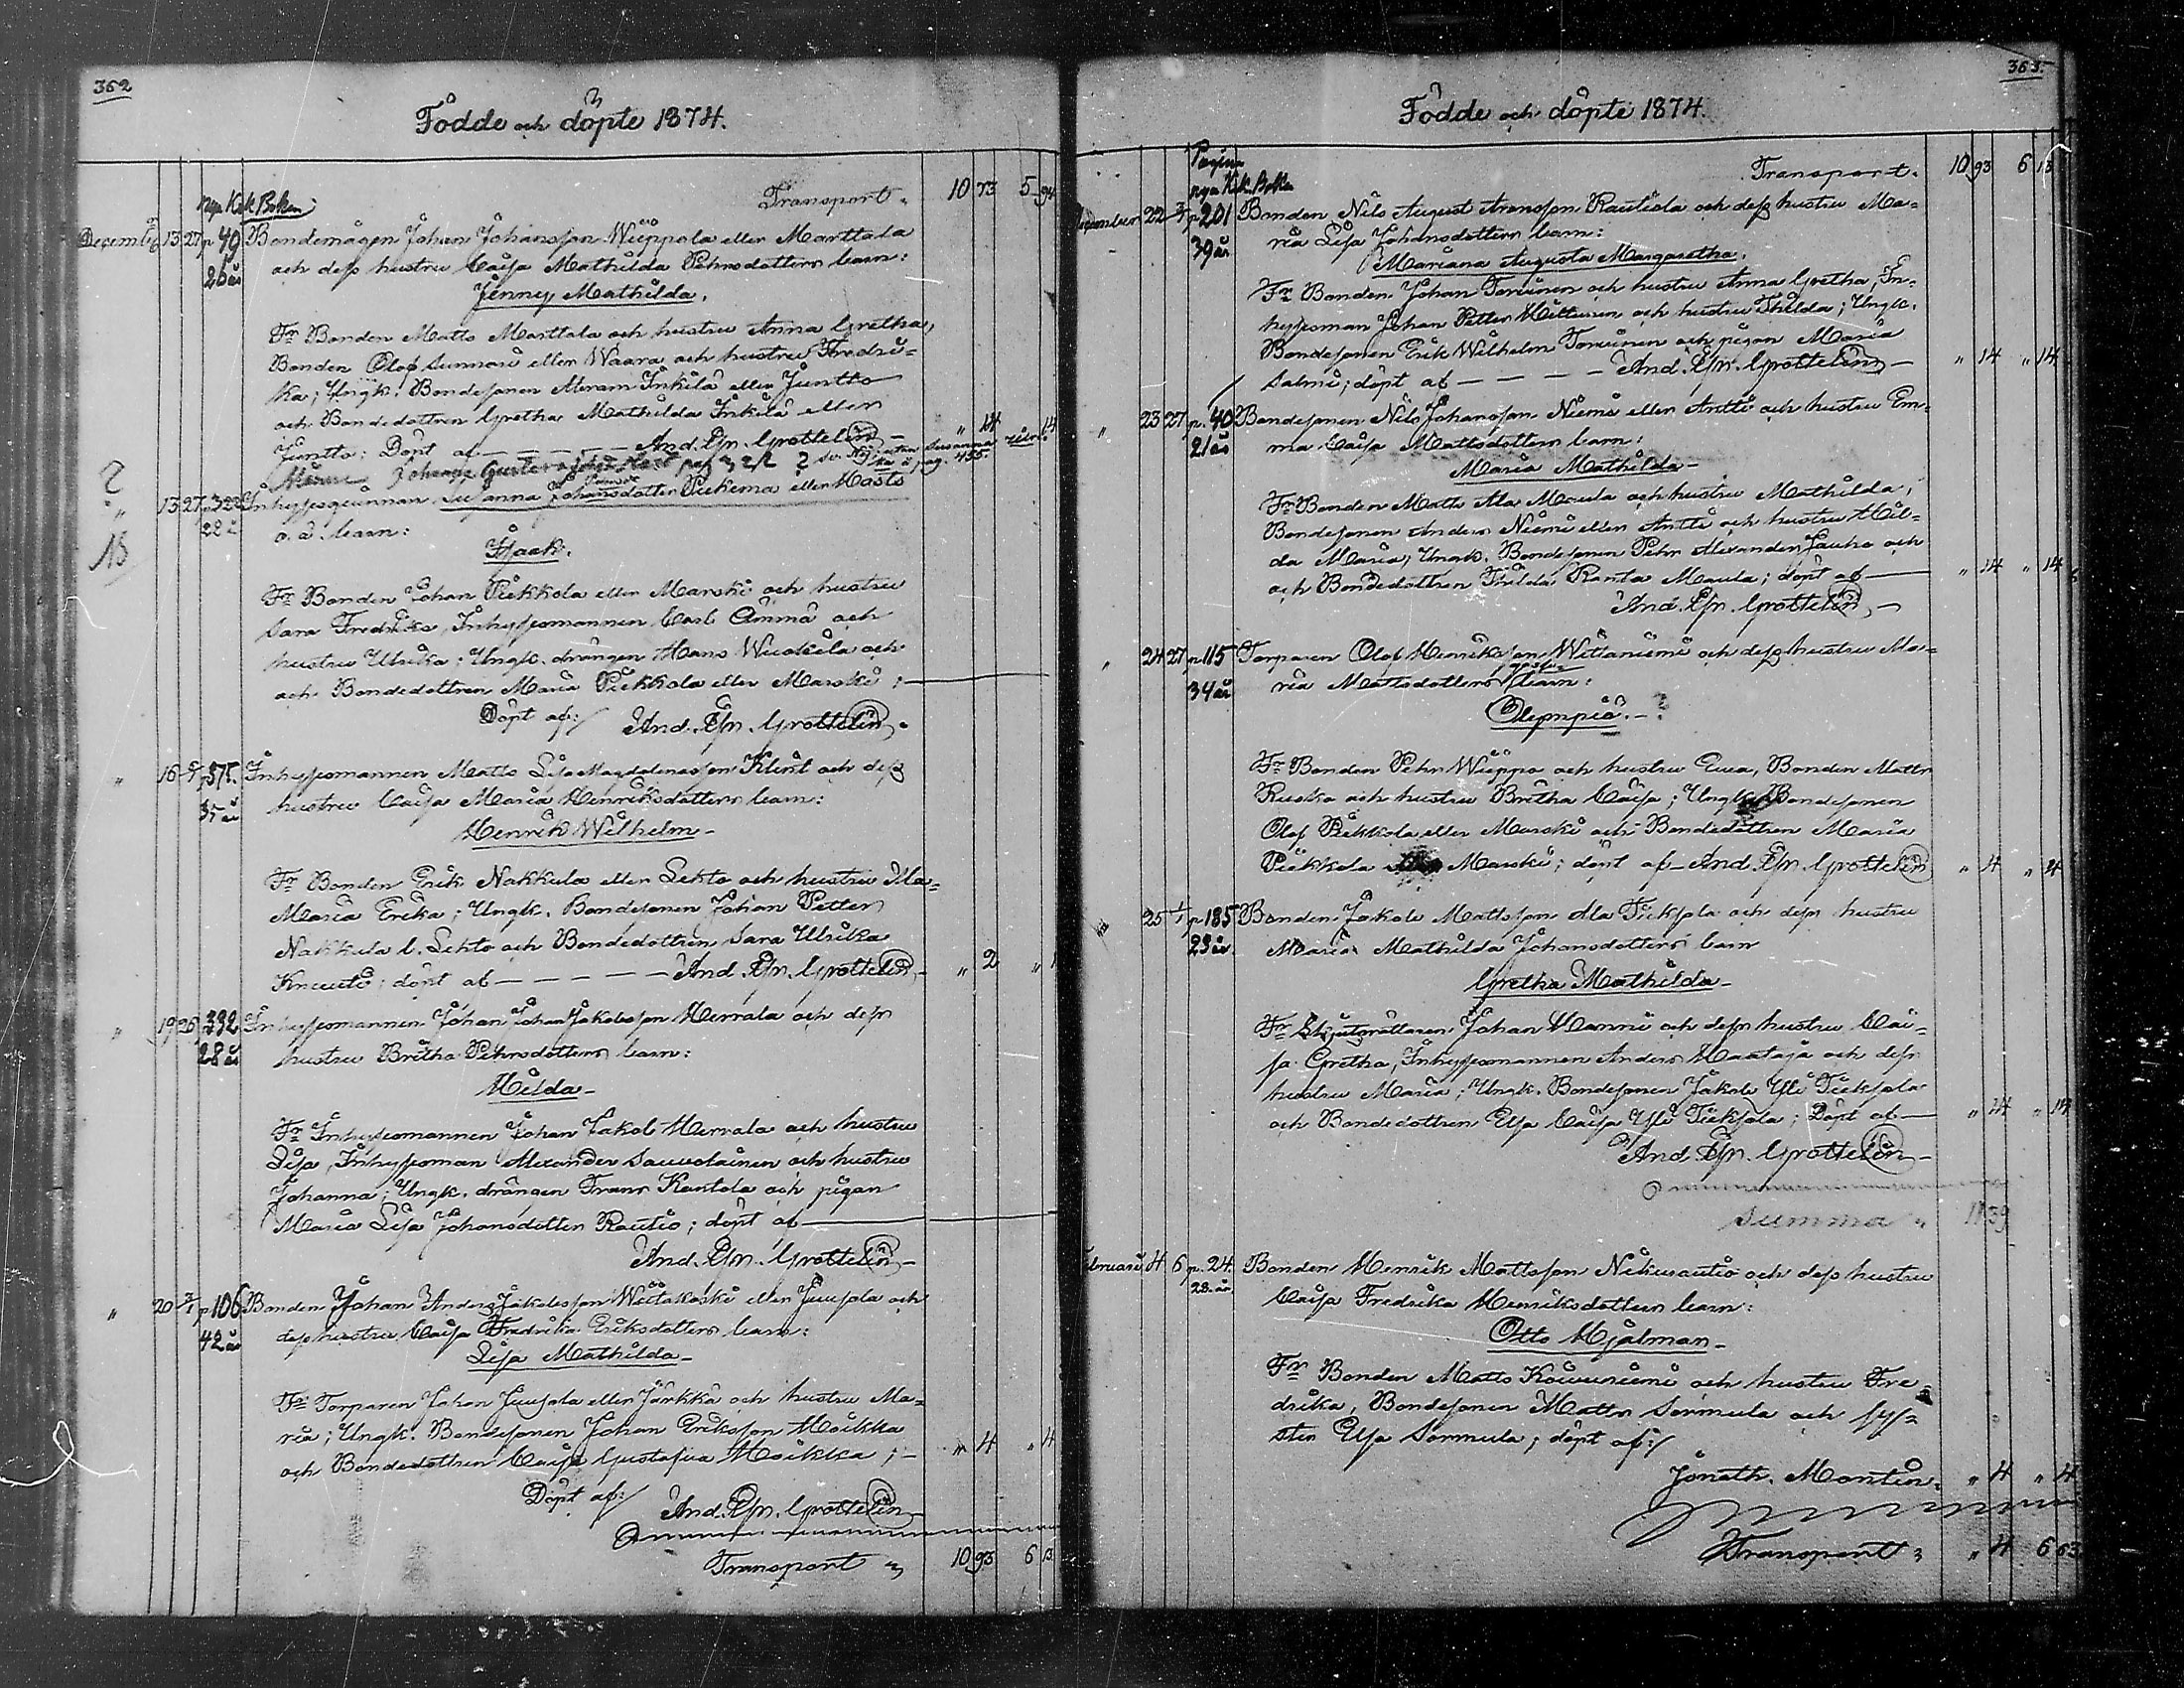 362
Födde och döpte 1874.
nya Krk Boken
Transport 10 73 5 94
December 13 27 p 49 Bondemågen Johan Johansson Wiippola eller Marttala
26 år och dess hustru Caisa Mathilda Pehrsdotters barn:
Jenny Mathilda.
Fr Bonden Matts Marttala och hustru Anna Gretha,
Bonden Olof Sunnari eller Waara och hustru Fredri-
ka; Ungk. Bondesonen Abram Inkilä eller Juntto
och Bondedottren Gretha Mathilda Inkilä eller
Juntto: Döpt af — — — And. Efr. Grottelin — " 14 " 14
Johan Gustaf
? " 13 27 p 322 Inhysesqvinnan Susanna Johansdotter Piekema eller Masto
22 å o. ä. barn:
Isaak.
Fr Bonden Johan Piekkola eller Marski och hustru
Sara Fredrika, Inhysesmannen Carl Ämmä och
hustru Ulrika; Ungk. drängen Hans Wuokila och
och Bondedottren Maria Piekkola eller Marski;
Döpt af:/ And. Efr. Grottelin.
" 16 p 371. Inhysesmannen Matts Lisa Magdalenasson Klint och dess
35 år hustru Caisa Maria Henriksdotters barn:
Henrik Wilhelm —
Fr Bonden Erik Nakkula eller Lehto och hustru Ma-
Maria Erika; Ungk. Bondesonen Johan Petter
Nakkula l. Lehto och Bondedottren Sara Ulrika
Knuuti; döpt af — — — — And. Efr. Grottelin — " 2 " 1
" 19 26 p 332 Inhysesmannen Johan Johan Jakobsson Herrala och dess
28 år hustru Britha Pehrsdotters barn:
Hilda —
Fr Inhysesmannen Johan Jakob Herrala och hustru
Lisa, Inhysesman Alexander Sauvolainen och hustru
Johanna; Ungk. drängen Frans Kantola och pigan
Maria Lisa Johansdotter Rautio; döpt af
And. Efr. Grottelin —
" 20 2/1 p 106 Bonden Johan Anders Jakobsson Wiitakoski eller Juusola och
42 år dess hustru Caisa Fredrika Eriksdotters barn:
Lisa Mathilda —
Fr Torparen Johan Juusola eller Järkkä och hustru Ma-
ria; Ungk. Bondesonen Johan Eriksson Moikka
och Bondedottren Caisa Gustafva Moikka; — " 4 " 4
Döpt af:/ And. Efr. Grottelin —
Transport 10 93 6 13
363.
Födde och döpte 1874.
Pagina
nya Krk. Boken
Transport. 10 93 6 13
December 22 3/1 p 201 Bonden Nils August Aronsson Rautiola och dess hustru Ma-
39 år ria Lisa Johansdotters barn:
Mariana Augusta Margaretha.
Fr Bonden Johan Toriinen och hustru Anna Gretha, In-
hysesman Johan Petter Hiltunen och hustru Thilda; Ungk.
Bondesonen Erik Wilhelm Toriinen och pigan Maria
Salmi; döpt af — — — — And. Efr. Grottelin — " 14 " 14
" 23 27 p. 40 Bondesonen Nils Johansson Niemi eller Antti och hustru Em-
21 år ma Caisa Mattsdotters barn:
Maria Mathilda —
Fr Bonden Matts Ala Maula och hustru Mathilda,
Bondesonen Anders Niemi eller Antti och hustru Hil-
da Maria, Ungk. Bondesonen Pehr Alexander Jauho och
och Bondedottren Thilda Ranta Maula; döpt af — " 14 " 14
And. Efr. Grottelin —
" 24 27 p 115 Torparen Olof Henriksson Wittaniemi och dess hustru Ma-
34 år ria Mattsdotters barn:
Olympia. — ?
Fr Bonden Pehr Wiippo och hustru Eva, Bonden Matts
Ruska och hustru Britha Caisa; Ungk. Bondesonen
Olof Piekkola eller Marski och Bondedottren Maria
Piekkola eller Marski; döpt af — And. Efr. Grottelin " 4 " 4
25 1/1 p 185 Bonden Jakob Mattsson Ala Tieksola och dess hustru
23 år. Maria Mathilda Johansdotters barn
Gretha Mathilda —
Fr Skjutsrättaren Johan Hannu och dess hustru Cai-
sa Gretha, Inhysesmannen Anders Maataja och dess
hustru Maria; Ungk. Bondesonen Jakob Yli Tieksola
och Bondedottren Elsa Caisa Yli Tieksola; Döpt af — " 14 " 14
And. Efr. Grottelin —
Summa 11 39
Februari 4 6 p. 24. Bonden Henrik Mattsson Nikurautio och dess hustru
28 år Caisa Fredrika Henriksdotters barn:
Otto Hjalman —
Fr Bonden Matts Koivuniemi och hustru Fre-
drika, Bondesonen Matts Sormula och sys-
ster Elsa Sormula; döpt af:/
Jonath. Montin. " 4 " 4
Transport " 4 6 63